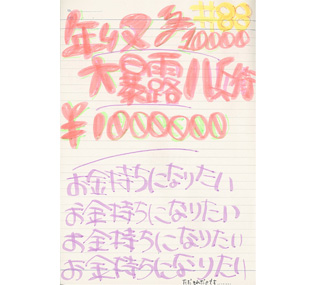 年収
10000
大暴露
¥1000000
お金持ちになりたい
お金持ちになりたい
お金持ちになりたい
お金持ちになりたい